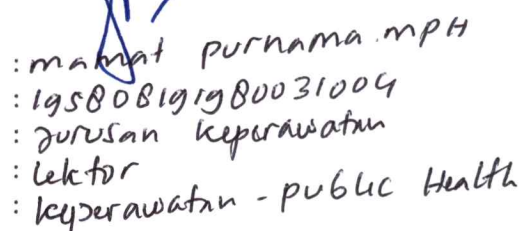 : mamat purnama. MPH
: 195808191980031004
: Jurusan keperawatan
: Lektor
: keperawatan - public Health